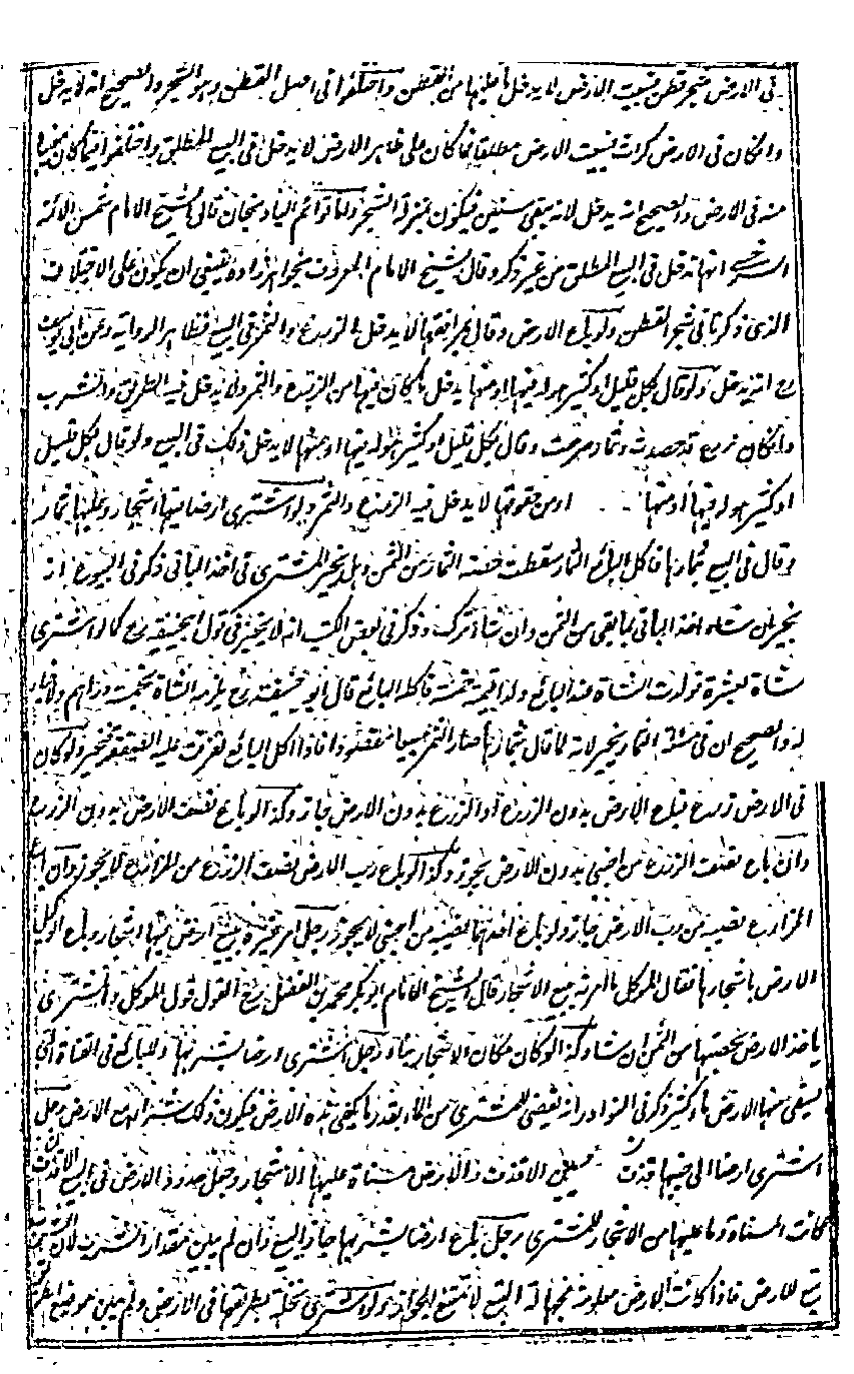 فى الارض شجر قطن فبيعت الارض لا يدخل ما عليها من القطن واختلفوا فى اصل القطن وهو الشجر والصحيح انه لا يدخل
وان كان فى الارض كراث فبيعت الارض مطلقا فما كان على ظاهر الارض لا يدخل فى البيع المطلق واختلفوا فيما كان مغيبا
منه فى الارض والصحيح انه يدخل لانه يبقى سنين فيكون بمنزلة الشجر واما قوائم الباذنجان قال الشيخ الامام شمس الائمة
السرخسى انها تدخل فى البيع المطلق من غير ذكر وقال الشيخ الامام المعروف بخواهر زاده ينبغى ان يكون على الاختلاف
الذى ذكرنا فى شجر القطن ولو باع الارض وقال بمرافقها لا يدخل الزرع والثمر فى البيع فى ظاهر الرواية وعن ابى يوسف
رح انه يدخل ولو قال بكل قليل او كثير هو له فيها او منها يدخل ما كان فيها من الزرع والثمر ولا يدخل فيه الطريق والشرب
وان كان زرع قد حصدت وثمار صرمت وقال بكل قليل او كثير هو له فيها او منها لا يدخل ذلك فى البيع ولو قال بكل قليل
او كثير هو له فيها او منها او من حقوقها لا يدخل فيه الزرع والثمر ولو اشترى ارضا فيها اشجار وعليها ثمار
وقال فى البيع بثمارها فاكل البائع الثمار سقطت حصة الثمار من الثمن وهل يخير المشترى فى اخذ الباقى ذكر فى البيوع انه
يخير ان شاء اخذ الباقى بما بقى من الثمن وان شاء ترك وذكر فى بعض الكتب انه لا يخير فى قول ابى حنيفة رح كما لو اشترى
شاة بعشرة فولدت الشاة عند البائع ولدا قيمته خمسة فاكله البائع قال ابو حنيفة رح يلزمه الشاة بخمسة دراهم ولا خيار
له والصحيح ان فى مسئلة الثمار يخير لانه لما قال بثمارها صار الثمر مبيعا مقصودا فاذا اكل البائع تفرقت عليه الصفقة فيتخير ولو كان
فى الارض زرع فباع الارض بدون الزرع او الزرع بدون الارض جاز وكذا لو باع نصف الارض بدون الزرع
وان باع نصف الزرع من اجنبى بدون الارض لا يجوز وكذا لو باع رب الارض نصف الزرع من المزارع لا يجوز وان باع
المزارع نصيبه من رب الارض جاز ولو باع احدهما نصيبه من اجنبى لا يجوز رجل امر غيره ببيع ارض فيها اشجار وباع الوكيل
الارض باشجارها فقال الموكل ما امرته ببيع الاشجار قال الشيخ الامام ابو بكر محمد بن الفضل رح القول قول الموكل والمشترى
ياخذ الارض بحصتها من الثمن ان شاء وكذا لو كان مكان الاشجار بناء رجل اشترى ارضا بشربها وللبائع فى القناة التى
يسقى منها الارض ماء كثير ذكر فى النوادر انه يقضى للمشترى من الماء بقدر ما يكفى هذه الارض فيكون ذلك شرب الارض رجل
اشترى ارضا الى جنبها والارض مسناة عليها الاشجار وجعل حدود الارض فى البيع
كانت المسناة وما عليها من الاشجار للمشترى رجل باع ارضا بشربها جاز البيع وان لم يبين مقدار الشرب لان الشرب
تبع للارض فاذا كانت الارض معلومة فجهالة التبع لا تمنع الجواز ولو اشترى نخلة بطريقها فى الارض ولم يبين موضع الطريق